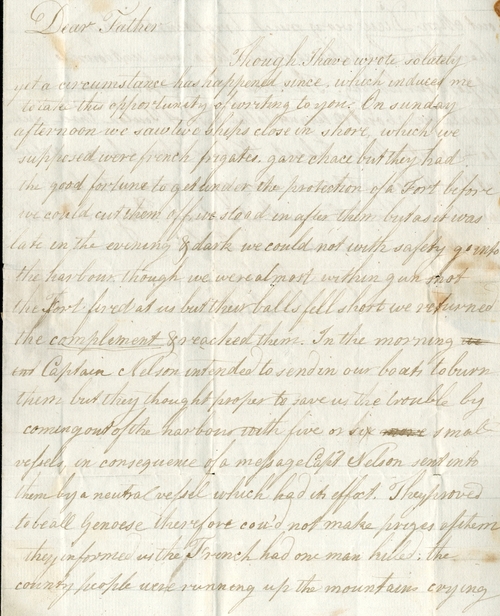 Dear Father
Though I have wrote so lately
yet a circumstance has happened since, which induces me
to take this opportunity of writing to you. On sunday
afternoon we saw two ships close in shore, which we
supposed were french frigates, gave chace but they had
the good fortune to get under the protection of a Fort before
we could cut them off, we stood in after them but as it was
late in the evening & dark we could not with safety go into
the harbour, though we were almost within gun shot
the Fort fired at us but their balls fell short we returned
the complement & reached them. In the morning
Captain Nelson intended to send in our boats to burn
them but they thought proper to save us the trouble by
coming out of the harbour with five or six small
vessels, in consequence of a message Capt Nelson sent into
them by a neutral vessel which had its effect. They proved
to be all Genoese therefore cou'd not make prizes of them
they informed us the French had one man killed: the
country people were running up the mountains crying